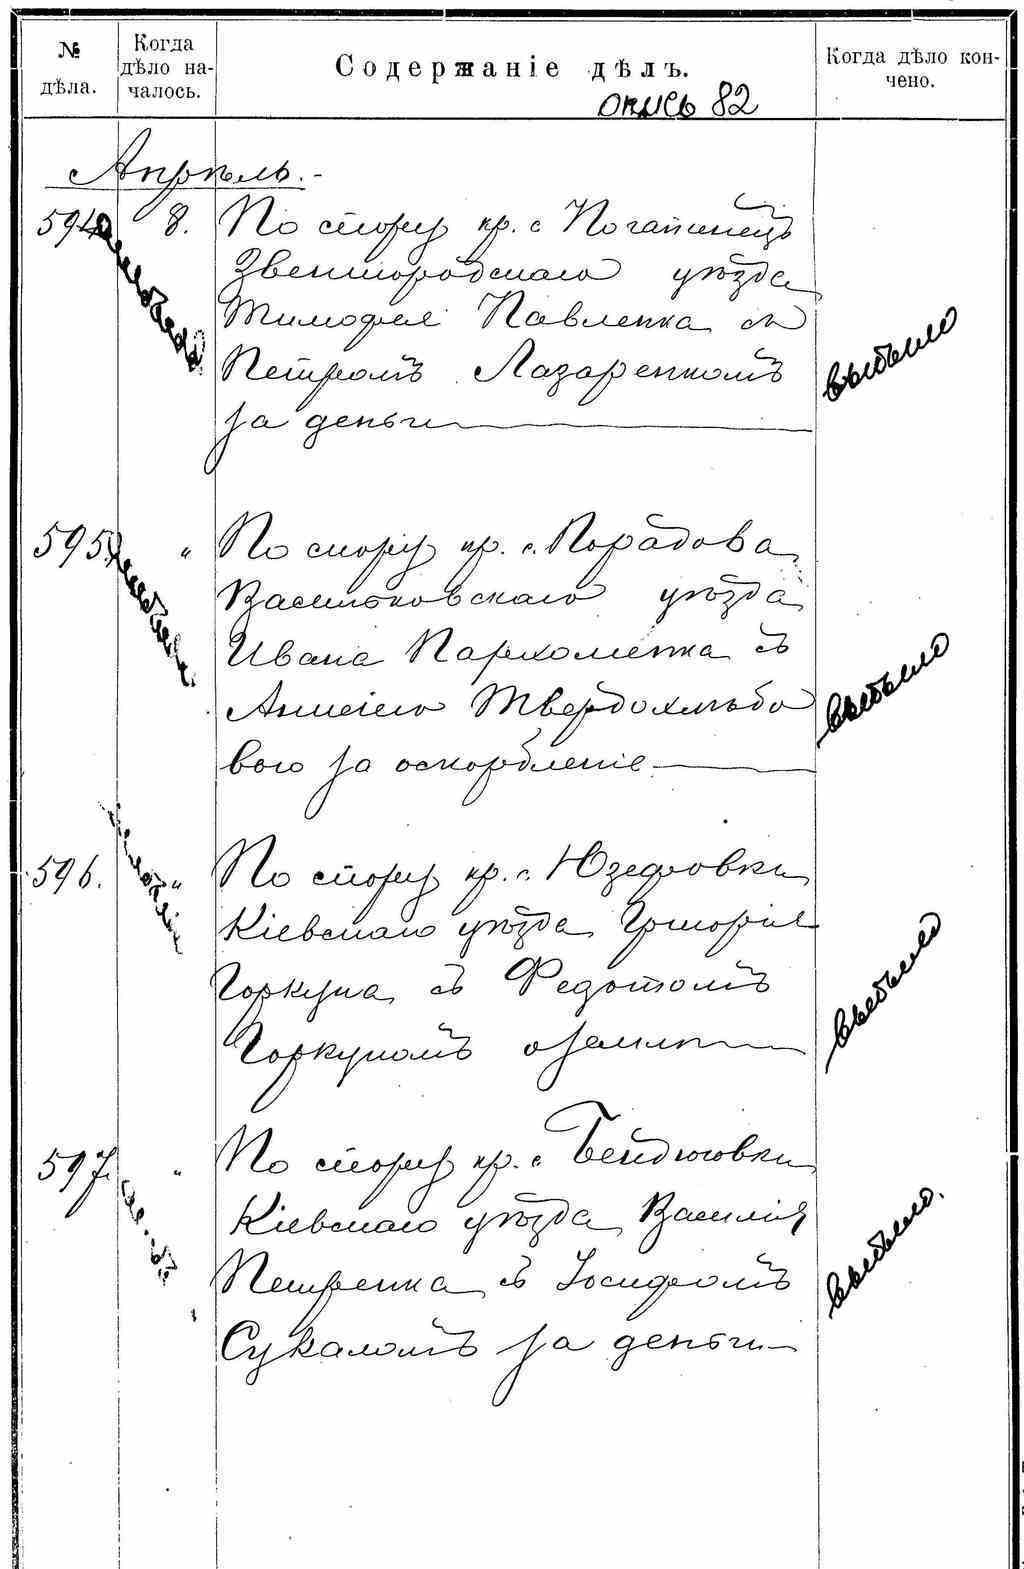 № дѣла.
Когда дѣло на-
чалось.
Содержаніе дѣлъ.
Когда дѣло кон-
чено.
опись 82
Апрѣль.
594 8. По спору кр. с
Звенигородскаго уѣзда
Тимофея Павленка съ
Петромъ Лазаренкомъ
за деньги
выбыло
595 " По спору кр. с. Порадова
Васильковскаго уѣзда
Ивана Пархоменка съ
Анисіею Твердохлѣбо
вою за оскорбленіе
выбыло
596. " По спору кр. с. Юзефовки
Кіевскаго уѣзда Григорія
Горкуна съ Федотомъ
Горкуномъ о землѣ
выбыло
597. " По спору кр. с
Кіевскаго уѣзда Василія
Петренка съ Іосифомъ
Сукаломъ за деньги
выбыло.